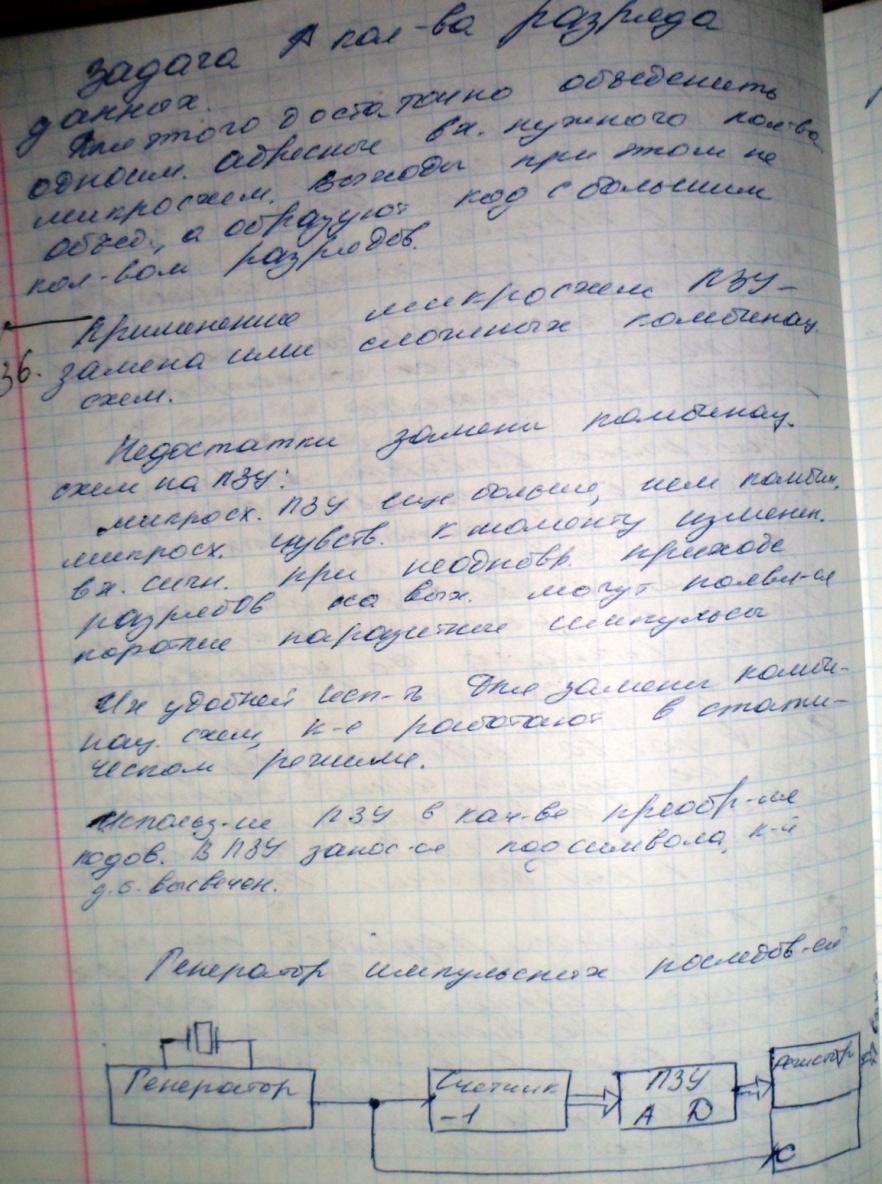 Задача ↑ кол-ва разряда
данных.
Для этого достаточно объеденить
одноим. адресные вх. нужного кол-ва
микросхем. Выходы при этом не
объед., а образуют код с большим
кол-вом разрядов.
Применение микросхем ПЗУ –
36. замена ими сложных комбинац.
схем.
Недостатки замены комбинац.
схем на ПЗУ:
микросх. ПЗУ еще больше, чем комбин.
микросх. чувств. к моменту изменен.
вх. сигн. при неоднвр. приходе
разрядов на вых. могут появл-ся
короткие паразитные импульсы
Их удобней исп-ть для замены комби-
нац. схем, к-е работают в стати-
ческом режиме.
Использ-ие ПЗУ в кач-ве преобр-ля
кодов. В ПЗУ занос-ся код символа, к-й
д.б. высвечен.
Генератор импульсных последов-ей
Генератор
Счетчик
-1
ПЗУ
A D
Регистр
C